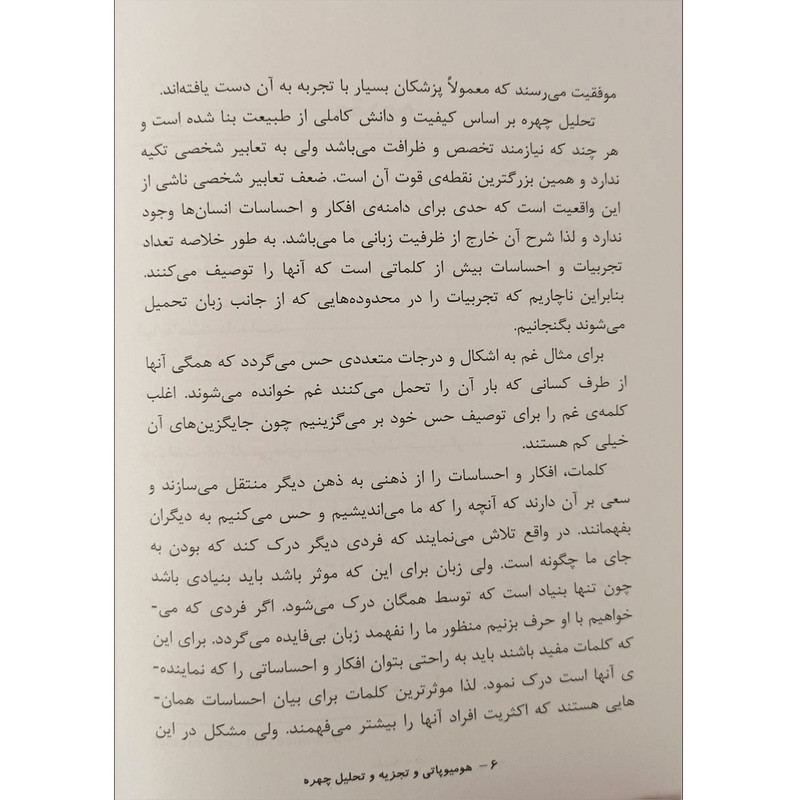 موفقیت می‌رسند که معمولاً پزشکان بسیار با تجربه به آن دست یافته‌اند.
تحلیل چهره بر اساس کیفیت و دانش کاملی از طبیعت بنا شده است و
هر چند که نیازمند تخصص و ظرافت می‌باشد ولی به تعابیر شخصی تکیه
ندارد و همین بزرگترین نقطه‌ی قوت آن است. ضعف تعابیر شخصی ناشی از
این واقعیت است که حدی برای دامنه‌ی افکار و احساسات انسان‌ها وجود
ندارد و لذا شرح آن خارج از ظرفیت زبانی ما می‌باشد. به طور خلاصه تعداد
تجربیات و احساسات بیش از کلماتی است که آنها را توصیف می‌کنند.
بنابراین ناچاریم که تجربیات را در محدوده‌هایی که از جانب زبان تحمیل
می‌شوند بگنجانیم.
برای مثال غم به اشکال و درجات متعددی حس می‌گردد که همگی آنها
از طرف کسانی که بار آن را تحمل می‌کنند غم خوانده می‌شوند. اغلب
کلمه‌ی غم را برای توصیف حس خود بر می‌گزینیم چون جایگزین‌های آن
خیلی کم هستند.
کلمات، افکار و احساسات را از ذهنی به ذهن دیگر منتقل می‌سازند و
سعی بر آن دارند که آنچه را که ما می‌اندیشیم و حس می‌کنیم به دیگران
بفهمانند. در واقع تلاش می‌نمایند که فردی دیگر درک کند که بودن به
جای ما چگونه است. ولی زبان برای این که موثر باشد باید بنیادی باشد
چون تنها بنیاد است که توسط همگان درک می‌شود. اگر فردی که می-
خواهیم با او حرف بزنیم منظور ما را نفهمد زبان بی‌فایده می‌گردد. برای این
که کلمات مفید باشند باید به راحتی بتوان افکار و احساساتی را که نماینده-
ی آنها است درک نمود. لذا موثرترین کلمات برای بیان احساسات همان-
هایی هستند که اکثریت افراد آنها را بیشتر می‌فهمند. ولی مشکل در این
۶ – هومیوپاتی و تجزیه و تحلیل چهره